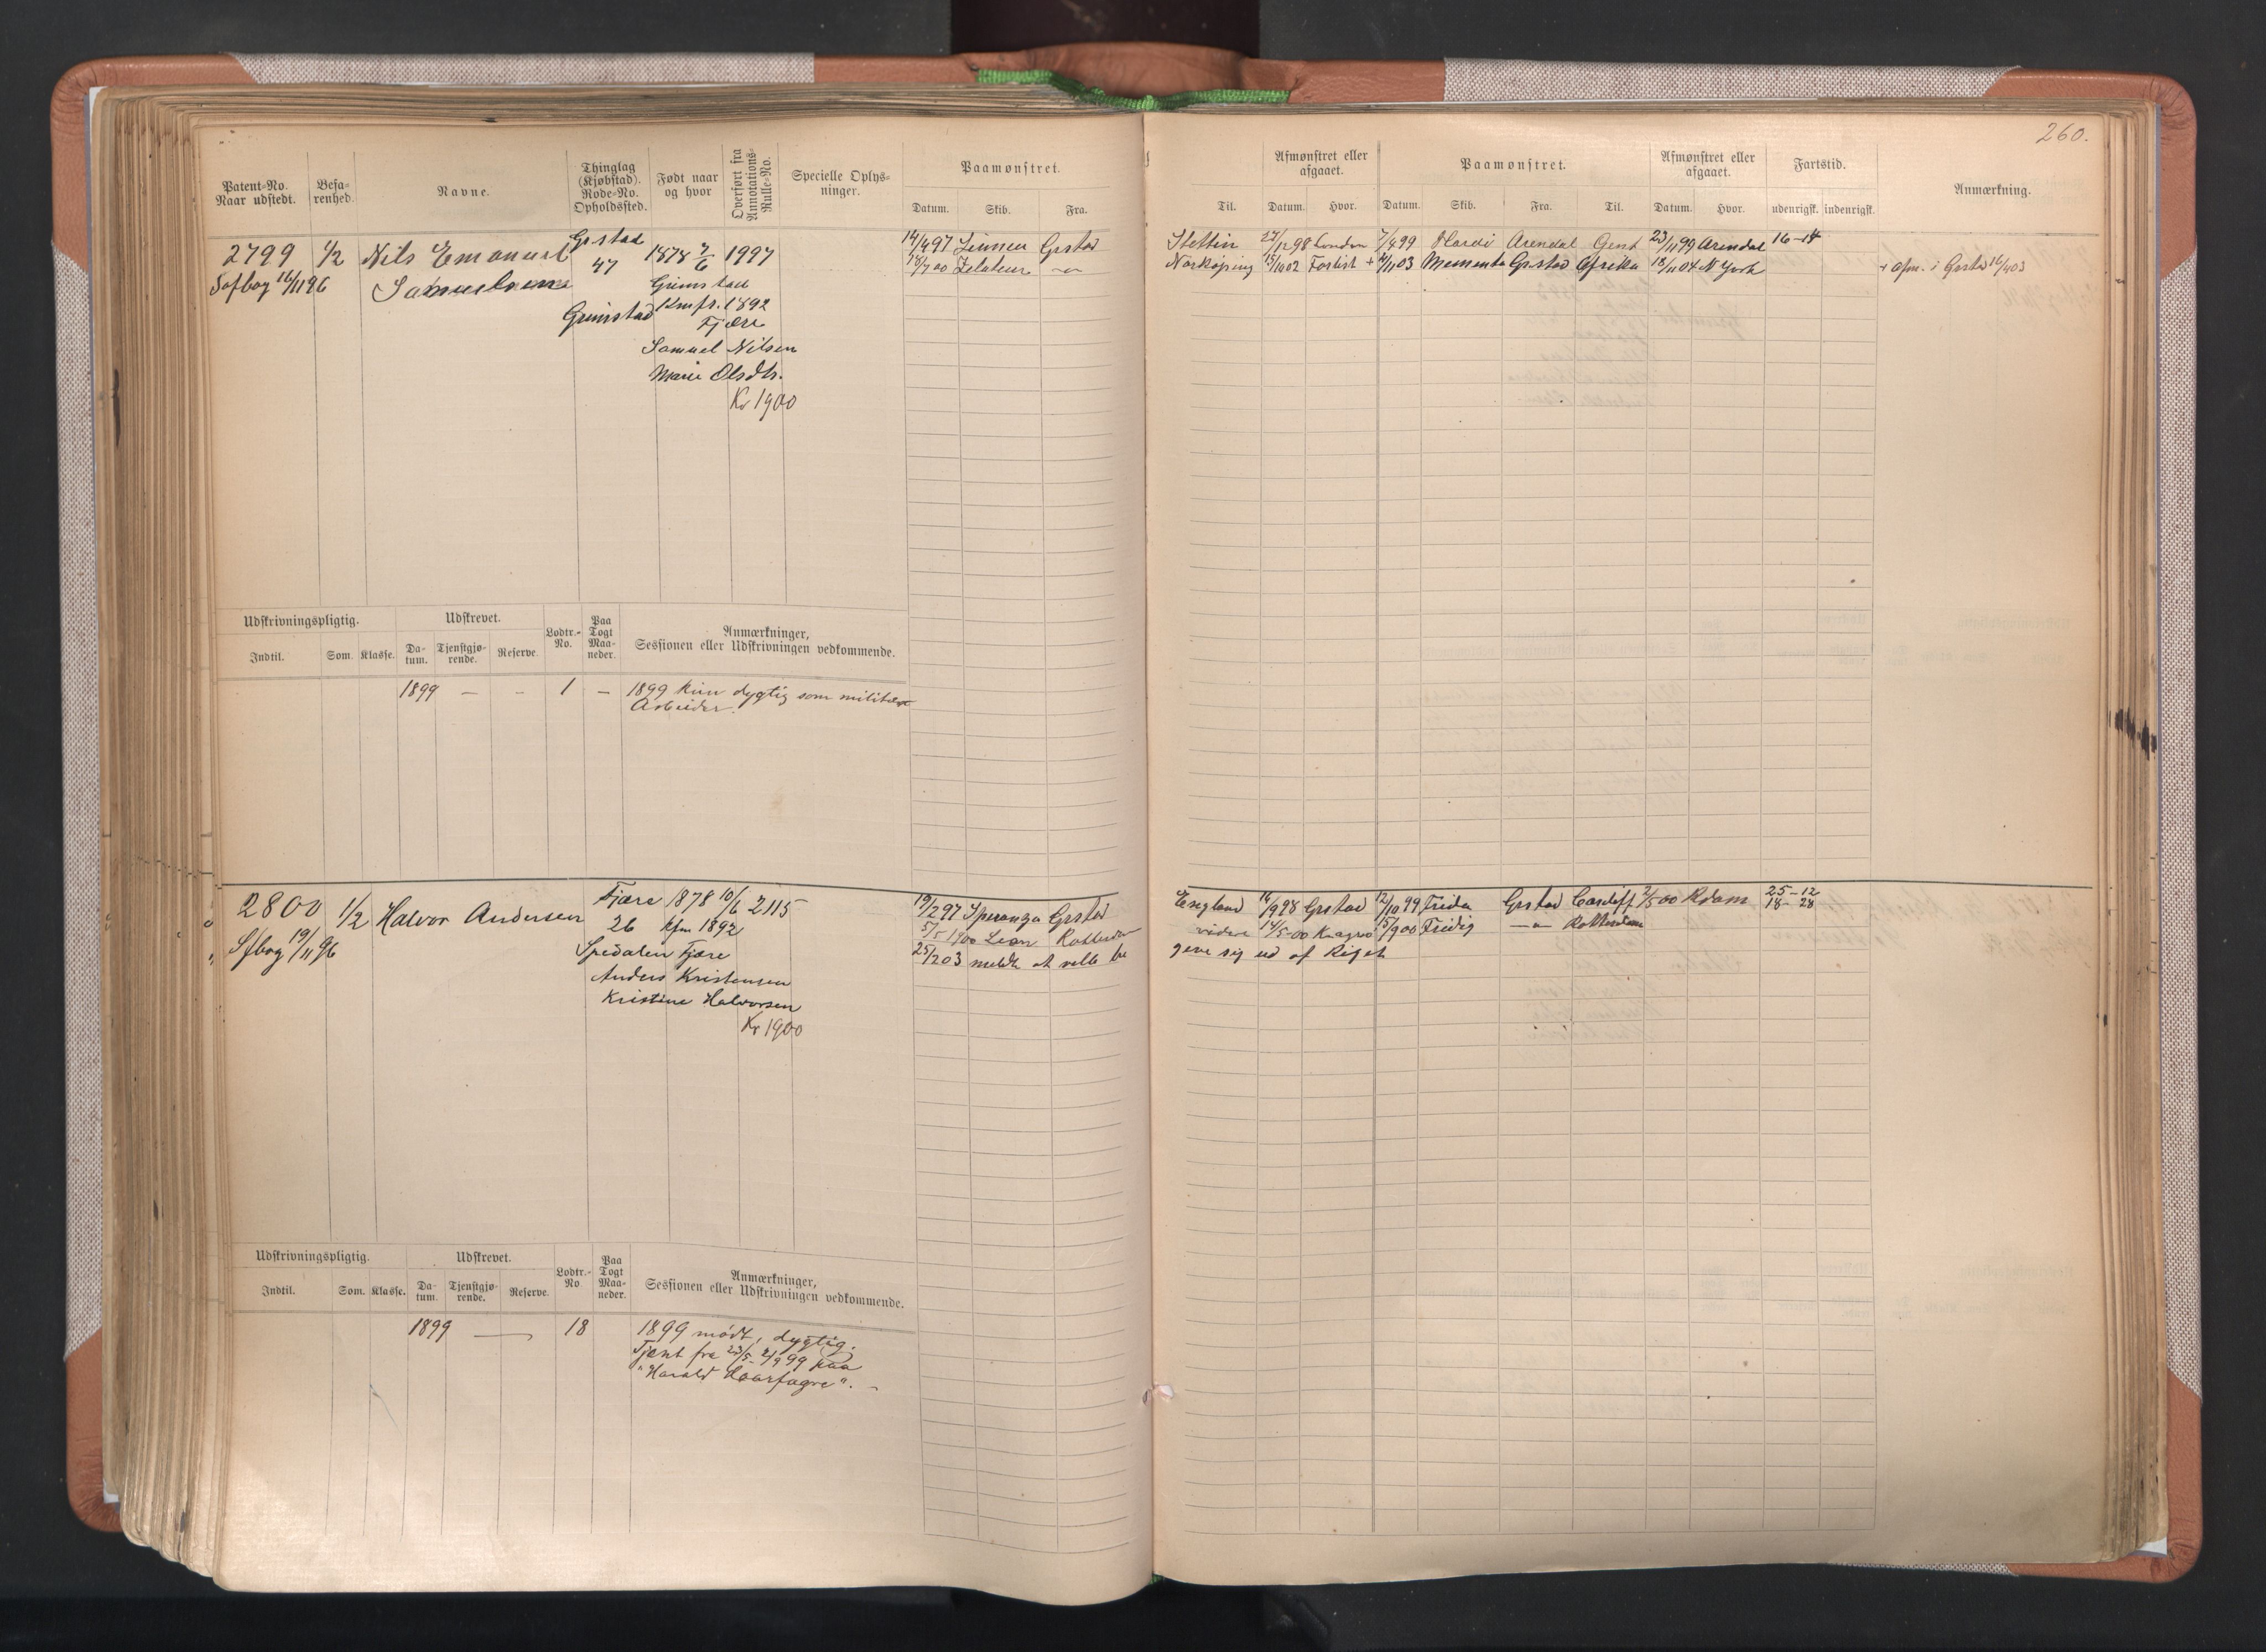 260.
Patent-No. Naar udstedt. Befarenhed. Navne. Thinglag (Kjøbstad). Rode-No. Opholdssted. Født naar og hvor Overført fra Annotations-Rulle-No. Specielle Oplysninger. Paamønstret. Afmønstret eller afgaaet. Paamønstret. Afmønstret eller afgaaet. Fartstid. Anmærkning.
Datum. Skib. Fra. Til. Datum. Hvor. Datum. Skib. Fra. Til. Datum. Hvor. udenrigsk. indenrigsk.
2799 1/2 Nils Emanuel Grstad 1878 7/6 1997 14/4 97 Grstad Stettin 27/12 98 London 7/4 99 Arendal Gent 23/11 99 Arendal 16-14
Søfbog 16/11 96 Samuelsen 47 Grimstad 18/7 00 Norkøping 15/10 02 Forlist + 4/11 03 Memento Grstad Afrika 18/11 04 N York + afm. i Grstd 16/4 03
Grimstad Kmfr. 1892
Fjære
Samuel Nilsen
Marie Olsdtr.
Kr 1900
Udskrivningspligtig. Udskrevet. Lodtr.-No. Paa Togt Maaneder. Anmærkninger, Sessionen eller Udskrivningen vedkommende.
Indtil. Som. Klasse. Datum. Tjenstgjørende. Reserve.
1899 — - 1 — 1899 kun dygtig som militær
Arbeider.
2800 1/2 Halvor Andersen Fjære 1878 10/6 2115 19/2 97 Speranza Grstad England 16/9 98 Grstad 12/10 99 Frida Grstad Cardiff 2/5 00 Rdam 25-12
Sfbog 19/11 96 26 Kfm 1892 5/5 1900 Leon Rotterdam videre 14/5-00 Kragrø 15/9 00 Fredig —"— Rotterdam 18-28
Spedalen Fjære 25/2 03 meldt at ville be geve sig ud af Riget
Anders Kristensen
Kristine Halvorsen
Kr 1900
Udskrivningspligtig. Udskrevet. Lodtr.-No. Paa Togt Maaneder. Anmærkninger, Sessionen eller Udskrivningen vedkommende.
Indtil. Som. Klasse. Datum. Tjenstgjørende. Reserve.
1899 — 18 1899 mødt, dygtig.
Tjent fra 23/5-2/9 99 paa
"Harald Haarfagre". -